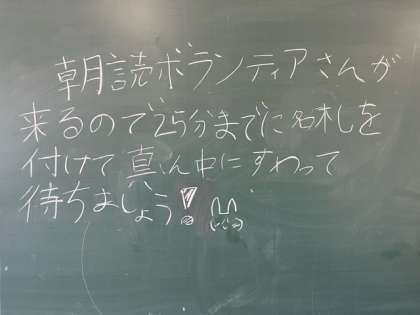 朝読ボランティアさんが
来るので25分までに名札を
付けて真ん中にすわって
待ちましょう!